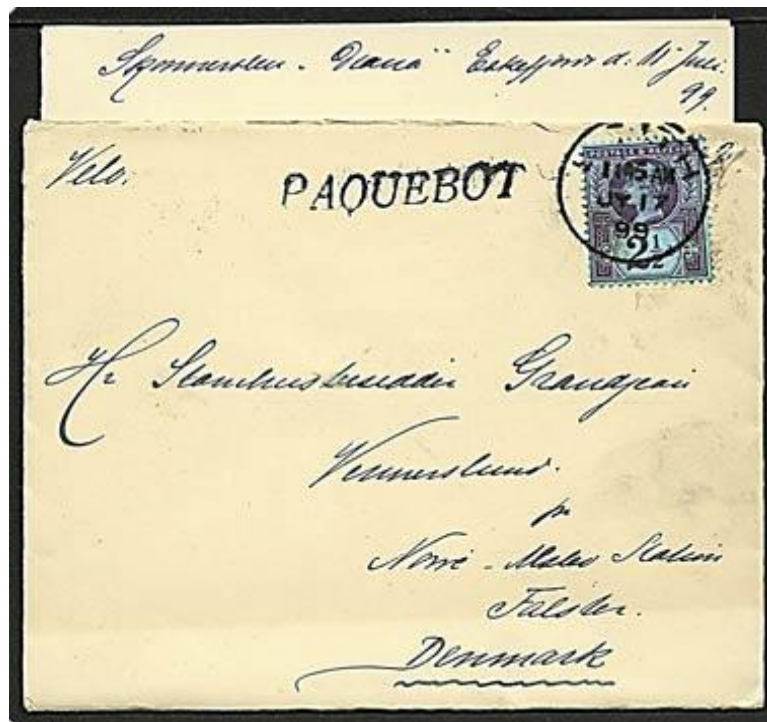 Skonnerten "Diana" Eskefjord d. 15 Juli.
99.
Velo.
PAQUEBOT
POSTAGE & REVENUE
1145 AM
JY 17
99
2½
Hr Stamhusbesidder Grandjean
Vennerslund.
pr
Nørre-Alslev Station
Falster.
Denmark